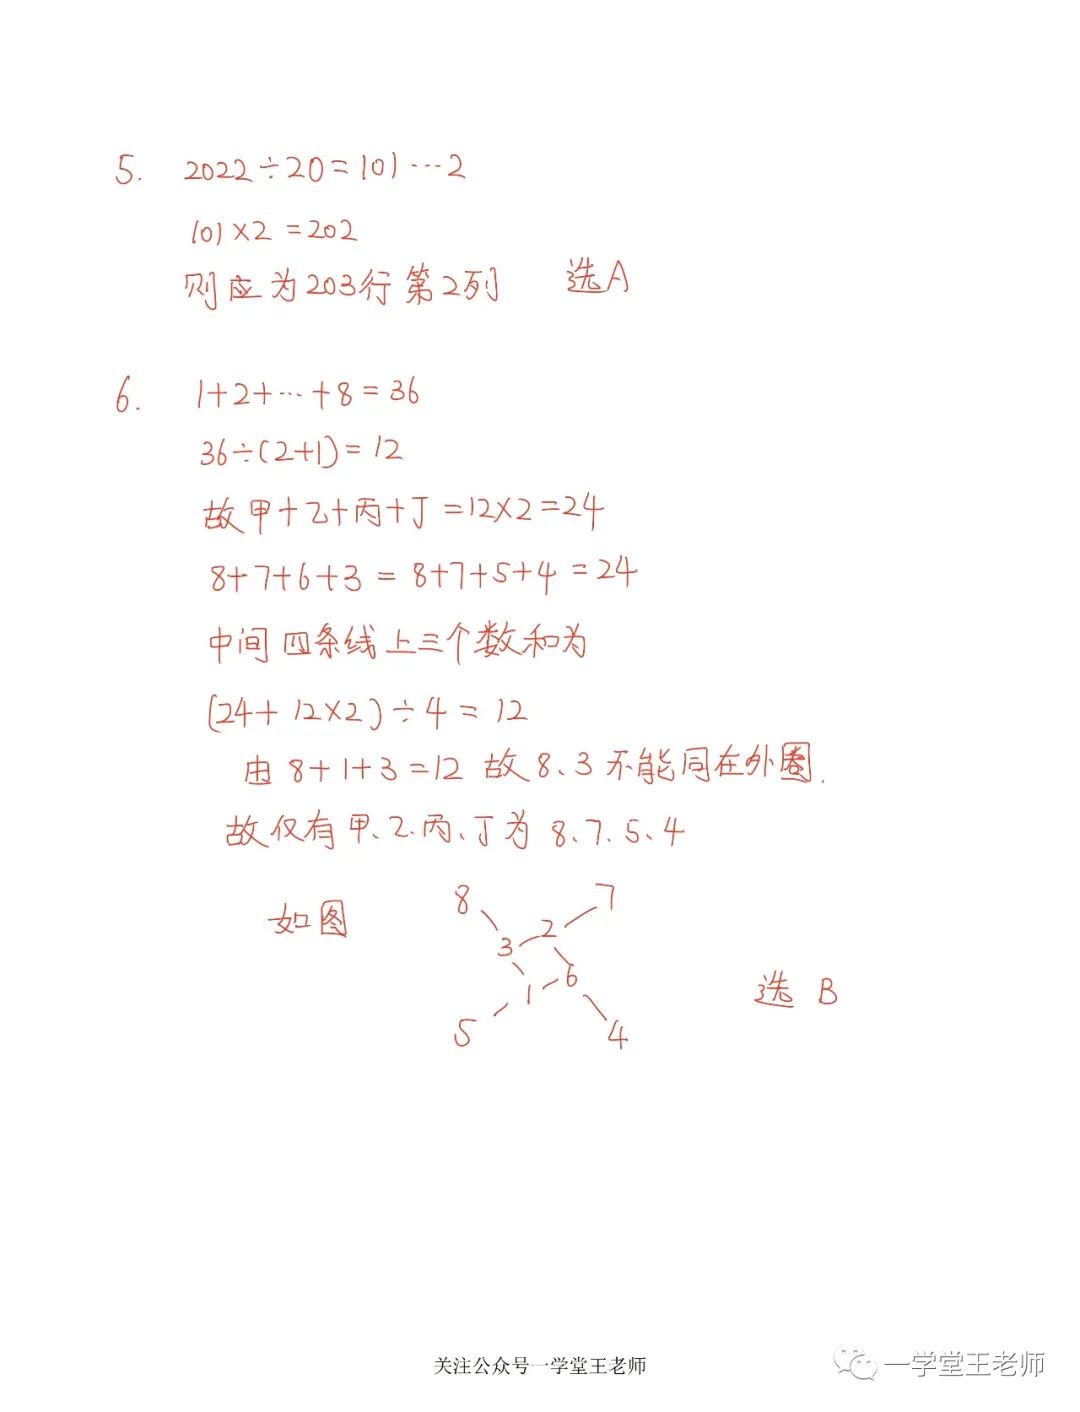 5. 2022÷20=101…2
101×2=202
则应为203行第2列 选A
6. 1+2+…+8=36
36÷(2+1)=12
故甲+乙+丙+丁=12×2=24
8+7+6+3=8+7+5+4=24
中间四条线上三个数和为
(24+12×2)÷4=12
由8+1+3=12 故8、3不能同在外圈.
故仅有甲、乙.丙、丁为8、7、5、4
如图
8 7
3 2
1 6
5 4
选 B
关注公众号一学堂王老师
一学堂王老师